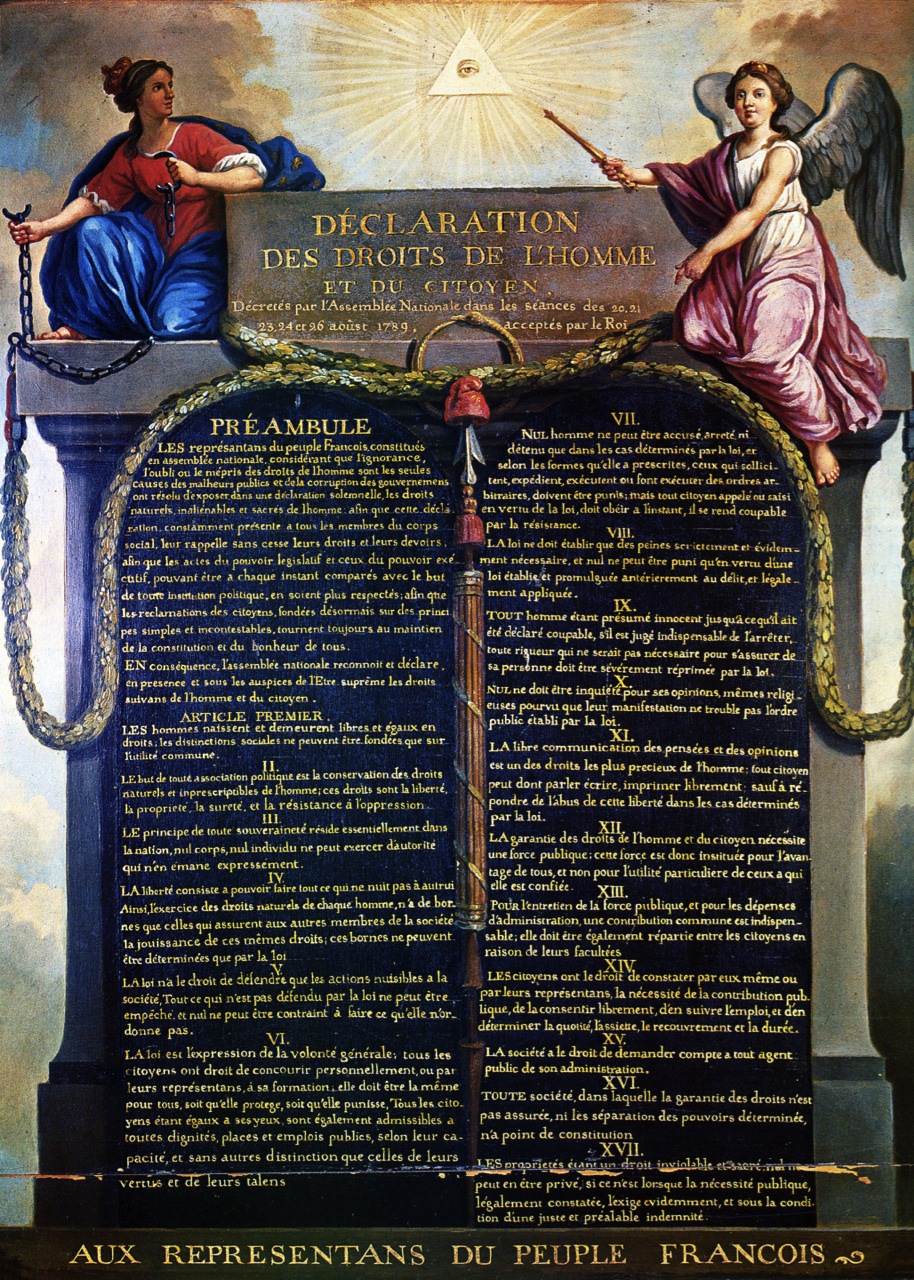 DÉCLARATION
DES DROITS DE L'HOMME
ET DU CITOYEN,
Décretés par l'Assemblée Nationale dans les séances des 20.21
23.24 et 26 août 1789, acceptés par le Roi
PRÉAMBULE
LES représentans du peuple François, constitués
en assemblée nationale, considérant que l'ignorance,
l'oubli ou le mépris des droits de l'homme sont les seules
causes des malheurs publics et de la corruption des gouvernemens
ont résolu d'exposer dans une déclaration solemnelle, les droits
naturels, inaliénables et sacrés de l'homme; afin que cette décla
ration, constamment présente a tous les membres du corps
social, leur rappelle sans cesse leurs droits et leurs devoirs,
afin que les actes du pouvoir legislatif et ceux du pouvoir exé
cutif, pouvant être a chaque instant comparés avec le but
de toute institution politique, en soient plus respectés; afin que
les reclamations des citoyens, fondées désormais sur des princi
pes simples et incontestables, tournent toujours au maintien
de la constitution et du bonheur de tous.
EN conséquence, l'assemblée nationale reconnoit et déclare,
en presence et sous les auspices de l'Etre suprême les droits
suivans de l'homme et du citoyen.
ARTICLE PREMIER.
LES hommes naissent et demeurent libres et égaux en
droits; les distinctions sociales ne peuvent être fondées que sur
l'utilité commune.
II.
LE but de toute association politique est la conservation des droits
naturels et inprescriptibles de l'homme; ces droits sont la liberté,
la propriete, la sureté, et la résistance à l'oppression.
III.
LE principe de toute souveraineté réside essentiellement dans
la nation, nul corps, nul individu ne peut exercer d'autorité
qui n'en émane expressement.
IV.
LA liberté consiste a pouvoir faire tout ce qui ne nuit pas à autrui
Ainsi, l'exercice des droits naturels de chaque homme, n'a de bor-
nes que celles qui assurent aux autres membres de la société
la jouissance de ces mêmes droits; ces bornes ne peuvent
être déterminées que par la loi
V.
LA loi n'a le droit de défendre que les actions nuisibles a la
société, Tout ce qui n'est pas défendu par la loi ne peut être
empêché, et nul ne peut être contraint à faire ce qu'elle n'or-
donne pas.
VI.
LA loi est l'expression de la volonté générale; tous les
citoyens ont droit de concourir personnellement, ou par
leurs représentans, à sa formation; elle doit être la même
pour tous, soit qu'elle protege, soit qu'elle punisse, Tous les cito-
yens étant égaux a ses yeux, sont également admissibles a
toutes dignités, places et emplois publics, selon leur ca-
pacité, et sans autres distinction que celles de leurs
vertus et de leurs talens
VII.
NUL homme ne peut être accusé, arreté, ni
détenu que dans les cas déterminés par la loi, et
selon les formes qu'elle a prescrites, ceux qui sollici-
tent, expédient, exécutent ou font exécuter des ordres ar-
bitraires, doivent être punis; mais tout citoyen appelé ou saisi
en vertu de la loi, doit obéir a l'instant, il se rend coupable
par la résistance.
VIII.
LA loi ne doit établir que des peines strictement et évidem-
ment nécessaire, et nul ne peut être puni qu'en vertu d'une
loi établie et promulguée antérierement au délit, et légale-
ment appliquée.
IX.
TOUT homme étant présumé innocent jusqu'a ce qu'il ait
été déclaré coupable, s'il est jugé indispensable de l'arrêter,
toute rigueur qui ne serait pas nécessaire pour s'assurer de
sa personne doit être sévèrement réprimée par la loi.
X.
NUL ne doit être inquiété pour ses opinions, mêmes religi-
euses pourvu que leur manifestation ne trouble pas l'ordre
public établi par la loi.
XI.
LA libre communication des pensées et des opinions
est un des droits les plus precieux de l'homme; tout citoyen
peut dont parler écrire, imprimer librement; sauf à ré-
pondre de l'abus de cette liberté dans les cas déterminés
par la loi.
XII.
LA garantie des droits de l'homme et du citoyen nécessite
une force publique; cette force est donc instituée pour l'avan-
tage de tous, et non pour l'utilité particuliere de ceux a qui
elle est confiée.
XIII.
POUR l'entretien de la force publique, et pour les dépenses
d'administration, une contribution commune est indispen-
sable; elle doit être également répartie entre les citoyens en
raison de leurs facultées
XIV.
LES citoyens ont le droit de constater par eux même ou
par leurs représentans, la nécessité de la contribution pub-
lique, de la consentir librement, d'en suivre l'emploi, et d'en
déterminer la quotité, l'assiette, le recouvrement et la durée.
XV.
LA société a le droit de demander compte a tout agent
public de son administration.
XVI.
TOUTE société, dans laquelle la garantie des droits n'est
pas assurée, ni les séparation des pouvoirs déterminée,
n'a point de constitution
XVII.
LES propriétés étant un droit inviolable et sacré, nul ne
peut en être privé, si ce n'est lorsque la nécessité publique,
légalement constatée, l'exige evidemment, et sous la condi-
tion d'une juste et préalable indemnité.
AUX REPRESENTANS DU PEUPLE FRANCOIS